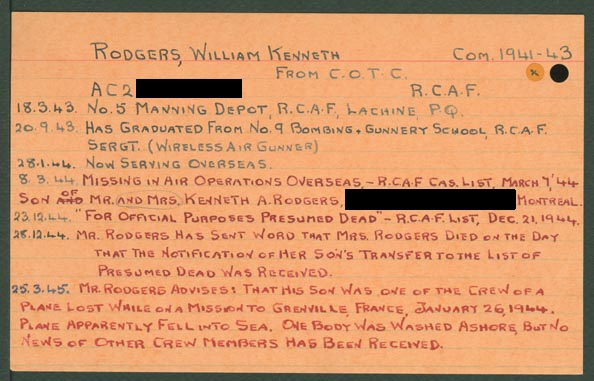 RODGERS, WILLIAM KENNETH COM. 1941-43
FROM C.O.T.C. x
AC2 R.C.A.F.
18.3.43. NO. 5 MANNING DEPOT, R.C.A.F, LACHINE, P.Q.
20.9.43. HAS GRADUATED FROM NO. 9 BOMBING + GUNNERY SCHOOL, R.C.A.F.
SERGT. (WIRELESS AIR GUNNER)
28.1.44. NOW SERVING OVERSEAS.
8.3.44. MISSING IN AIR OPERATIONS OVERSEAS, - R.C.A.F CAS. LIST, MARCH 7, '44
SON OF AND MR. AND MRS. KENNETH A. RODGERS, MONTREAL.
23.12.44. "FOR OFFICIAL PURPOSES PRESUMED DEAD" - R.C.A.F. LIST, DEC. 21, 1944.
28.12.44. MR. RODGERS HAS SENT WORD THAT MRS. RODGERS DIED ON THE DAY
THAT THE NOTIFICATION OF HER SON'S TRANSFER TO THE LIST OF
PRESUMED DEAD WAS RECEIVED.
25.3.45. MR. RODGERS ADVISES: THAT HIS SON WAS ONE OF THE CREW OF A
PLANE LOST WHILE ON A MISSION TO GRENVILLE, FRANCE, JANUARY 26, 1944.
PLANE APPARENTLY FELL INTO SEA. ONE BODY WAS WASHED ASHORE, BUT NO
NEWS OF OTHER CREW MEMBERS HAS BEEN RECEIVED.